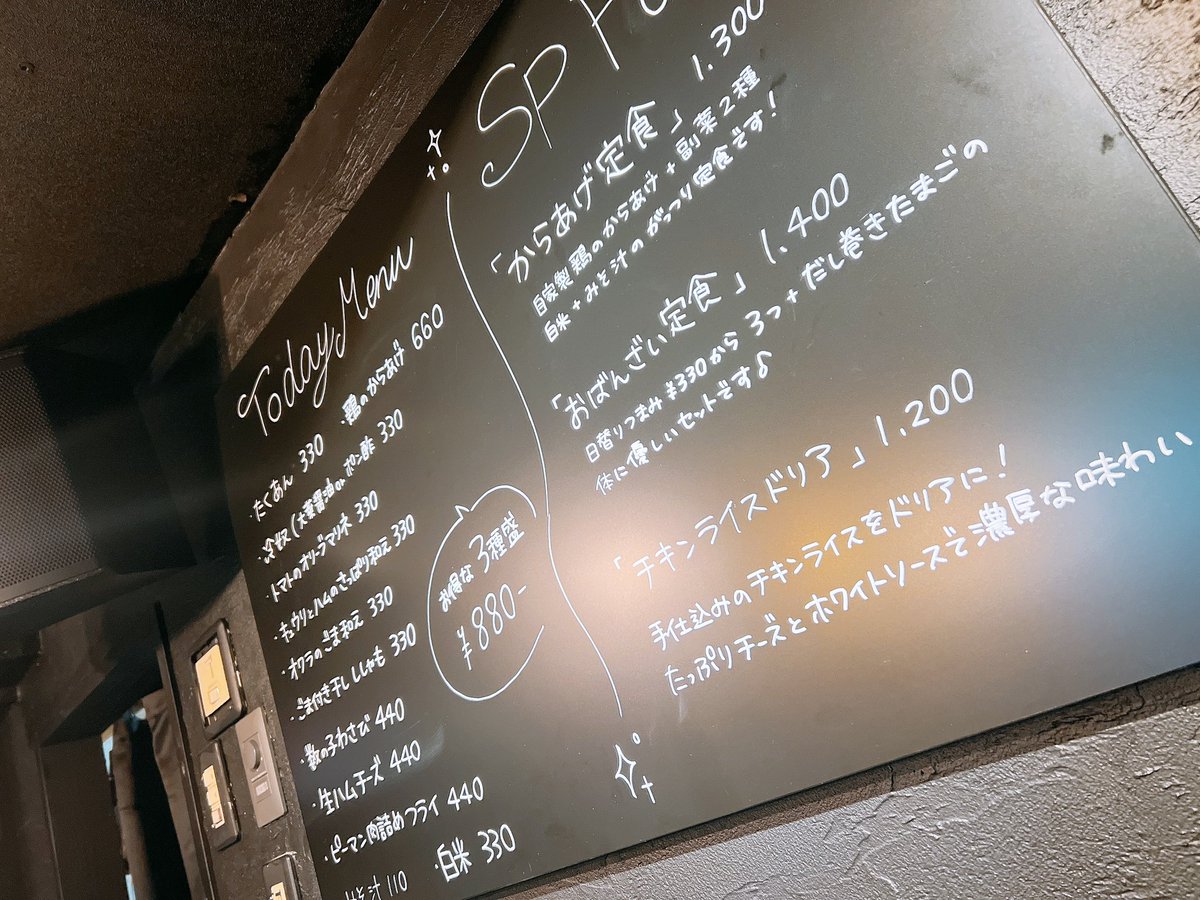 Today Menu
・たくあん 330
・鶏のからあげ 660
・冷奴(大葉醤油orポン酢 330
・トマトのオリーブマリネ 330
・キュウリとハムのさっぱり和え 330
・オクラのごま和え 330
・ごま付き干しししゃも 330
・数の子わさび 440
・生ハムチーズ 440
・ピーマン肉詰めフライ 440
みそ汁 110
・白米 330
お得な3種盛
¥880-
SP
「からあげ定食」 1.300
自家製鶏のからあげ+副菜2種
白米+みそ汁のがっつり定食です!
「おばんざい定食」 1.400
日替りつまみ¥330から3つ+だし巻きたまごの
体に優しいセットです♪
「チキンライスドリア」 1.200
手仕込みのチキンライスをドリアに!
たっぷりチーズとホワイトソースで濃厚な味わい